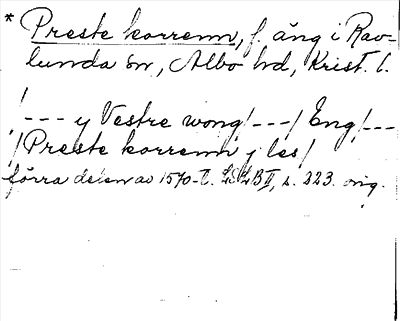 * Preste korrenn, f. äng i Rav-
lunda sn, Albo hd, Krist. l.
/--- y Vestre wong/---/ Eng/---
/Preste korrenn y les/
förra delen av 1570-t. LSLB II, s. 223. orig.